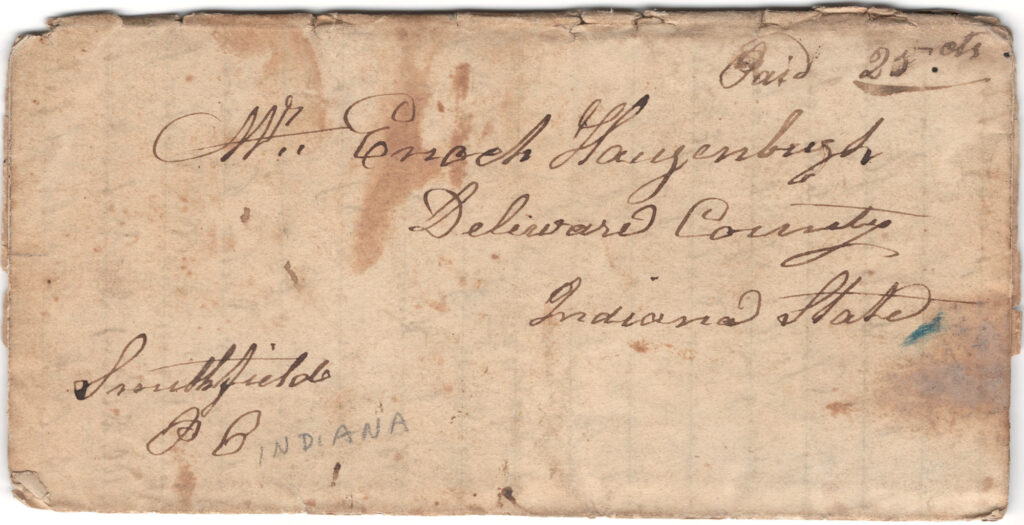 Paid 25.cts
Mr. Enoch Haugenbugh
Deliware County
Indiana State
Smithfield
P O
INDIANA